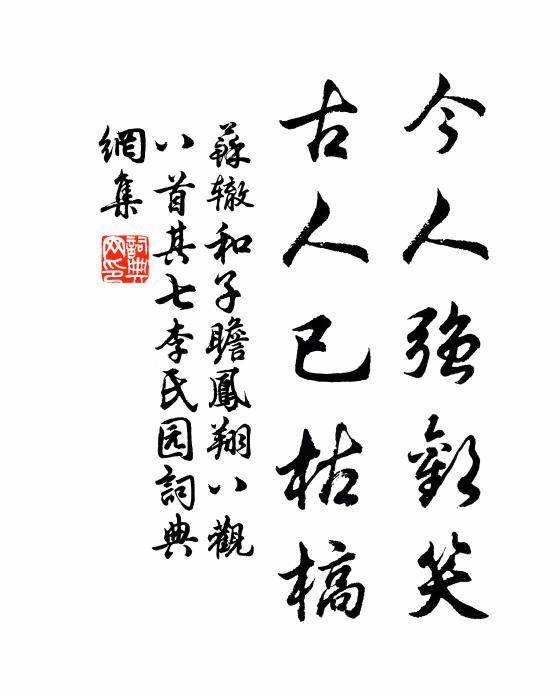 今人強歡笑
古人已枯槁
蘇辙和子瞻鳳翔八觀
八首其七李氏园詞典
網集
詞典网印